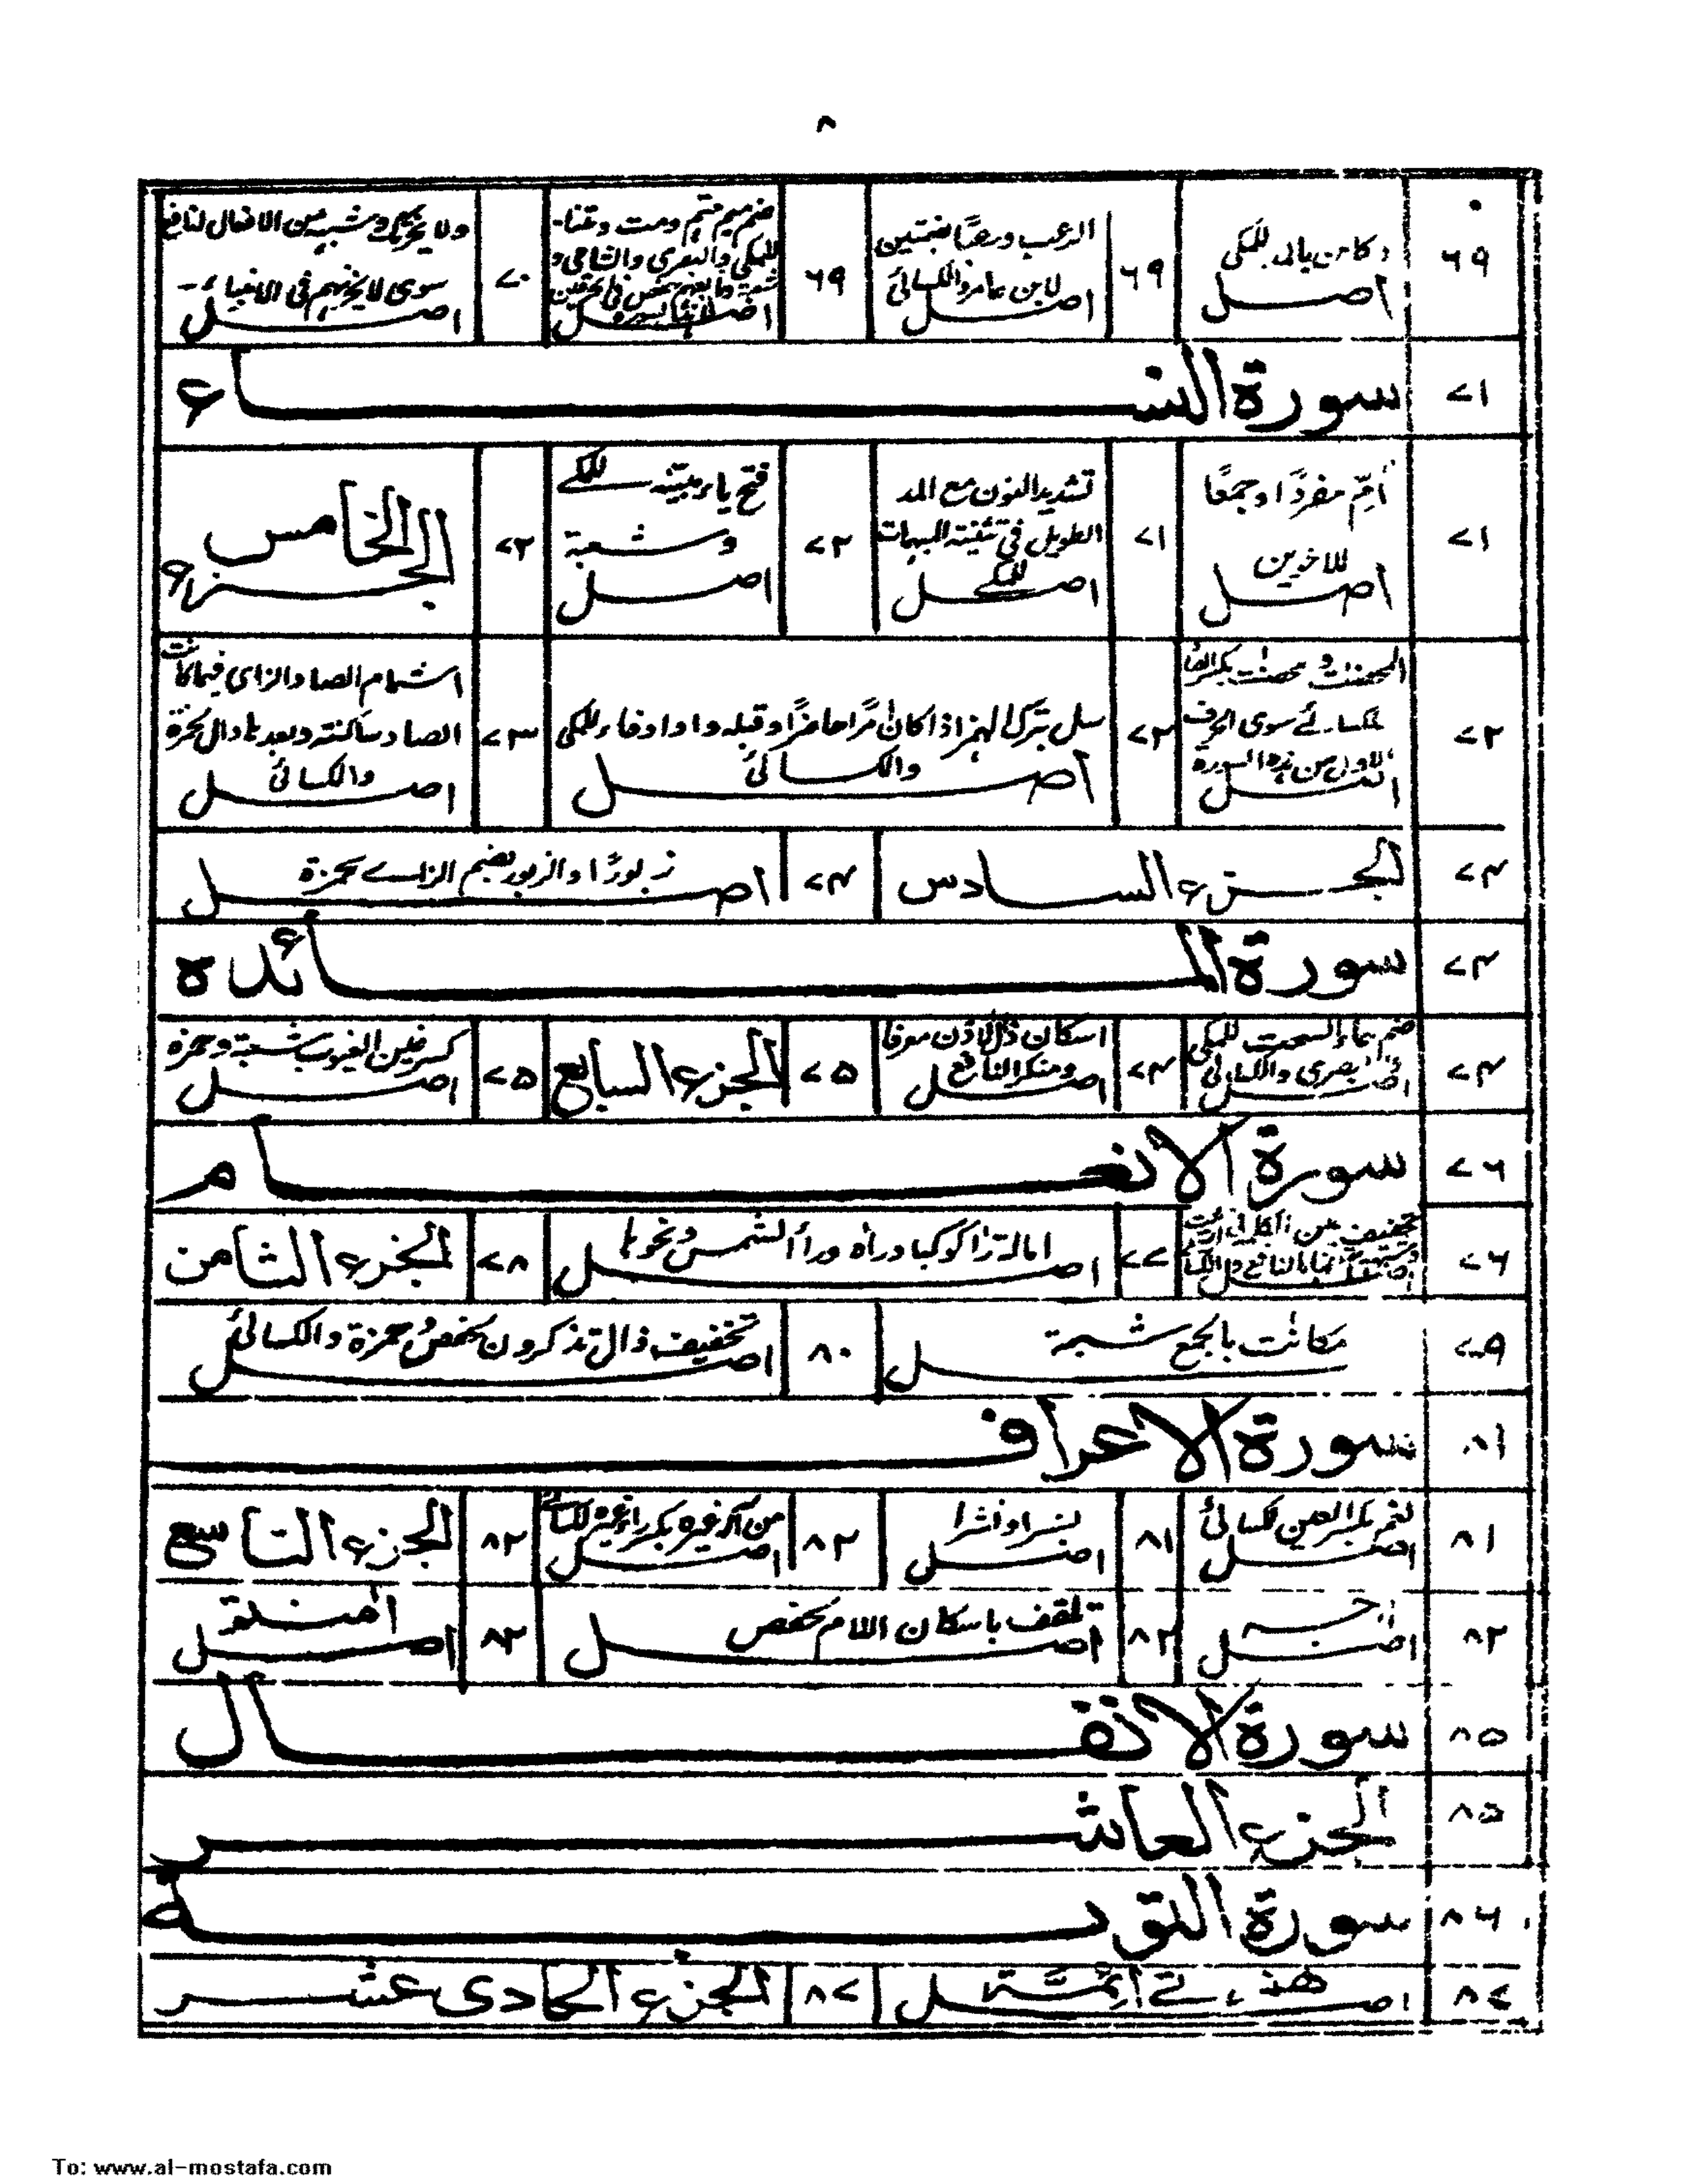 ٨
٦٩
وكائن بالمد للمكي
اصل
٦٩
الرعب ورعبًا بضمتين
لابن عامر والكسائي
اصل
٦٩
ضم ميم متم ومت ومتنا
للمكي والبصري والشامي و
شعبة
اصل
٧٠
ولا يحزنك وشبهه من الافعال لنافع
سوى لا يحزنهم في الانبياء
اصل
٧١
سورة النساء
٧١
اُمّ مفردًا وجمعًا
للاخوين
اصل
٧١
تشديد النون مع المد
الطويل في تثنية المبهمات
للمكي
اصل
٧٢
فتح ياء مبيّنه للمكي
وشعبة
اصل
٧٢
الجزء الخامس
٧٢
المحصنت و محصنت بكسر الصاد
للكسائي سوى الحرف
الاول من هذه السورة
اصل
٧٢
سل بترك الهمز اذا كان امرًا حاضرًا وقبله واو او فاء للمكي
والكسائي
اصل
٧٣
اشمام الصاد الزاى فيما كانت
الصاد ساكنة وبعدها دال لحمزة
والكسائي
اصل
٧٤
الجزء السادس
٧٤
زبورًا والزبور بضم الزاے لحمزة
اصل
٧٤
سورة المائده
٧٤
ضم حاء السحت للمكي
والبصري والكسائي
اصل
٧٤
اسكان ذال الاذن معرفا
ومنكرا لنافع
اصل
٧٥
الجزء السابع
٧٥
كسر غين الغيوب لشعبة وحمزه
اصل
٧٦
سورة الانعام
٧٦
اصل
٧٧
امالة رٰا كوكبا ورٰاه ورأ الشمس ونحوها
اصل
٧٨
الجزء الثامن
٧٩
مكانٰت بالجمع لشعبة
اصل
٨٠
تخفيف ذال تذكرون لحفص وحمزة والكسائي
اصل
٨١
سورة الاعراف
٨١
نعم بكسر العين للكسائي
اصل
٨١
نشرا
اصل
٨٢
من اله غيره بكسر راء غيره للكسائي
اصل
٨٢
الجزء التاسع
٨٢
ارجه
اصل
٨٢
تلقف باسكان اللام لحفص
اصل
٨٣
ءامنتم
اصل
٨٥
سورة الانفال
٨٥
الجزء العاشر
٨٦
سورة التوبة
٨٧
همزتے ائمّة
اصل
٨٧
الجزء الحادى عشر
To: www.al-mostafa.com